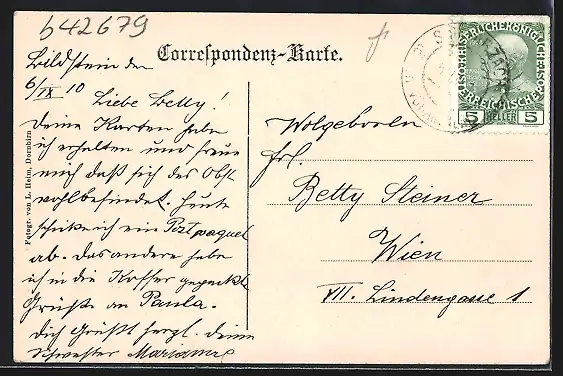 642679
Correspondenz-Karte.
Bildstein den
6/IX 10
Liebe Betty!
Deine Karten habe
ich erhalten und freue
mich daß sich das Obst
wohlbefindet. Heute
schicke ich ein Postpaquet
ab. Das andere habe
ich in die Koffer gepackt.
Grüße an Paula.
Dich Grüßt herzl. deine
Schwester Marianne
Fotogr. von L. Heim, Dornbirn
KAISERLICHE KÖNIGLICHE
ÖSTERREICHISCHE POST
5 HELLER 5
Wolgeboren
Frl.
Betty Steiner
Wien
VII. Lindengasse 1